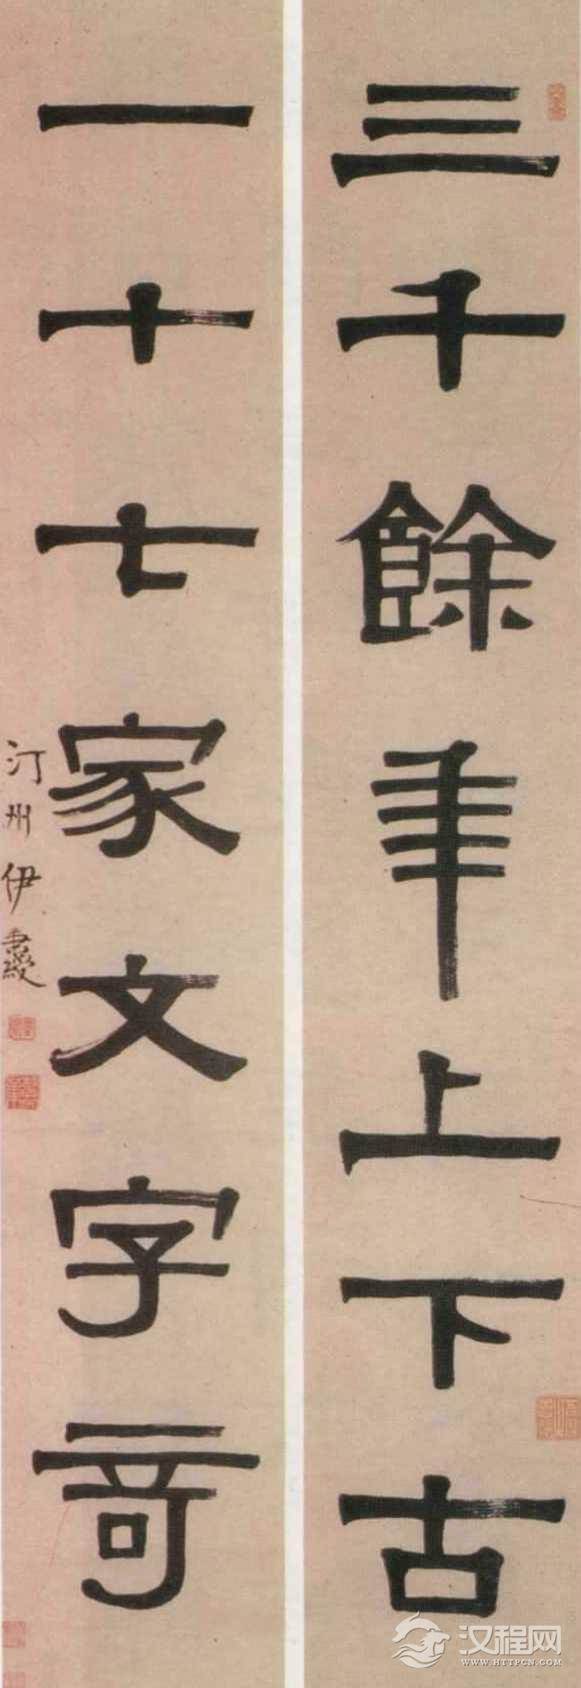 三千餘年上下古
一十七家文字奇
汀州伊秉綬
汉程网
WWW.HTTPCN.COM